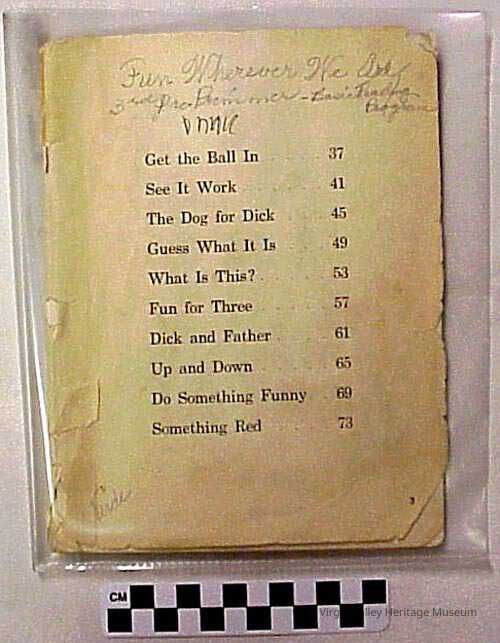 Fun Wherever We Are
3rd Pre Primmer - Basic Reading
Program
Get the Ball In 37
See It Work 41
The Dog for Dick 45
Guess What It Is 49
What Is This? 53
Fun for Three 57
Dick and Father 61
Up and Down 65
Do Something Funny 69
Something Red 73
3
CM
Heritage Museum